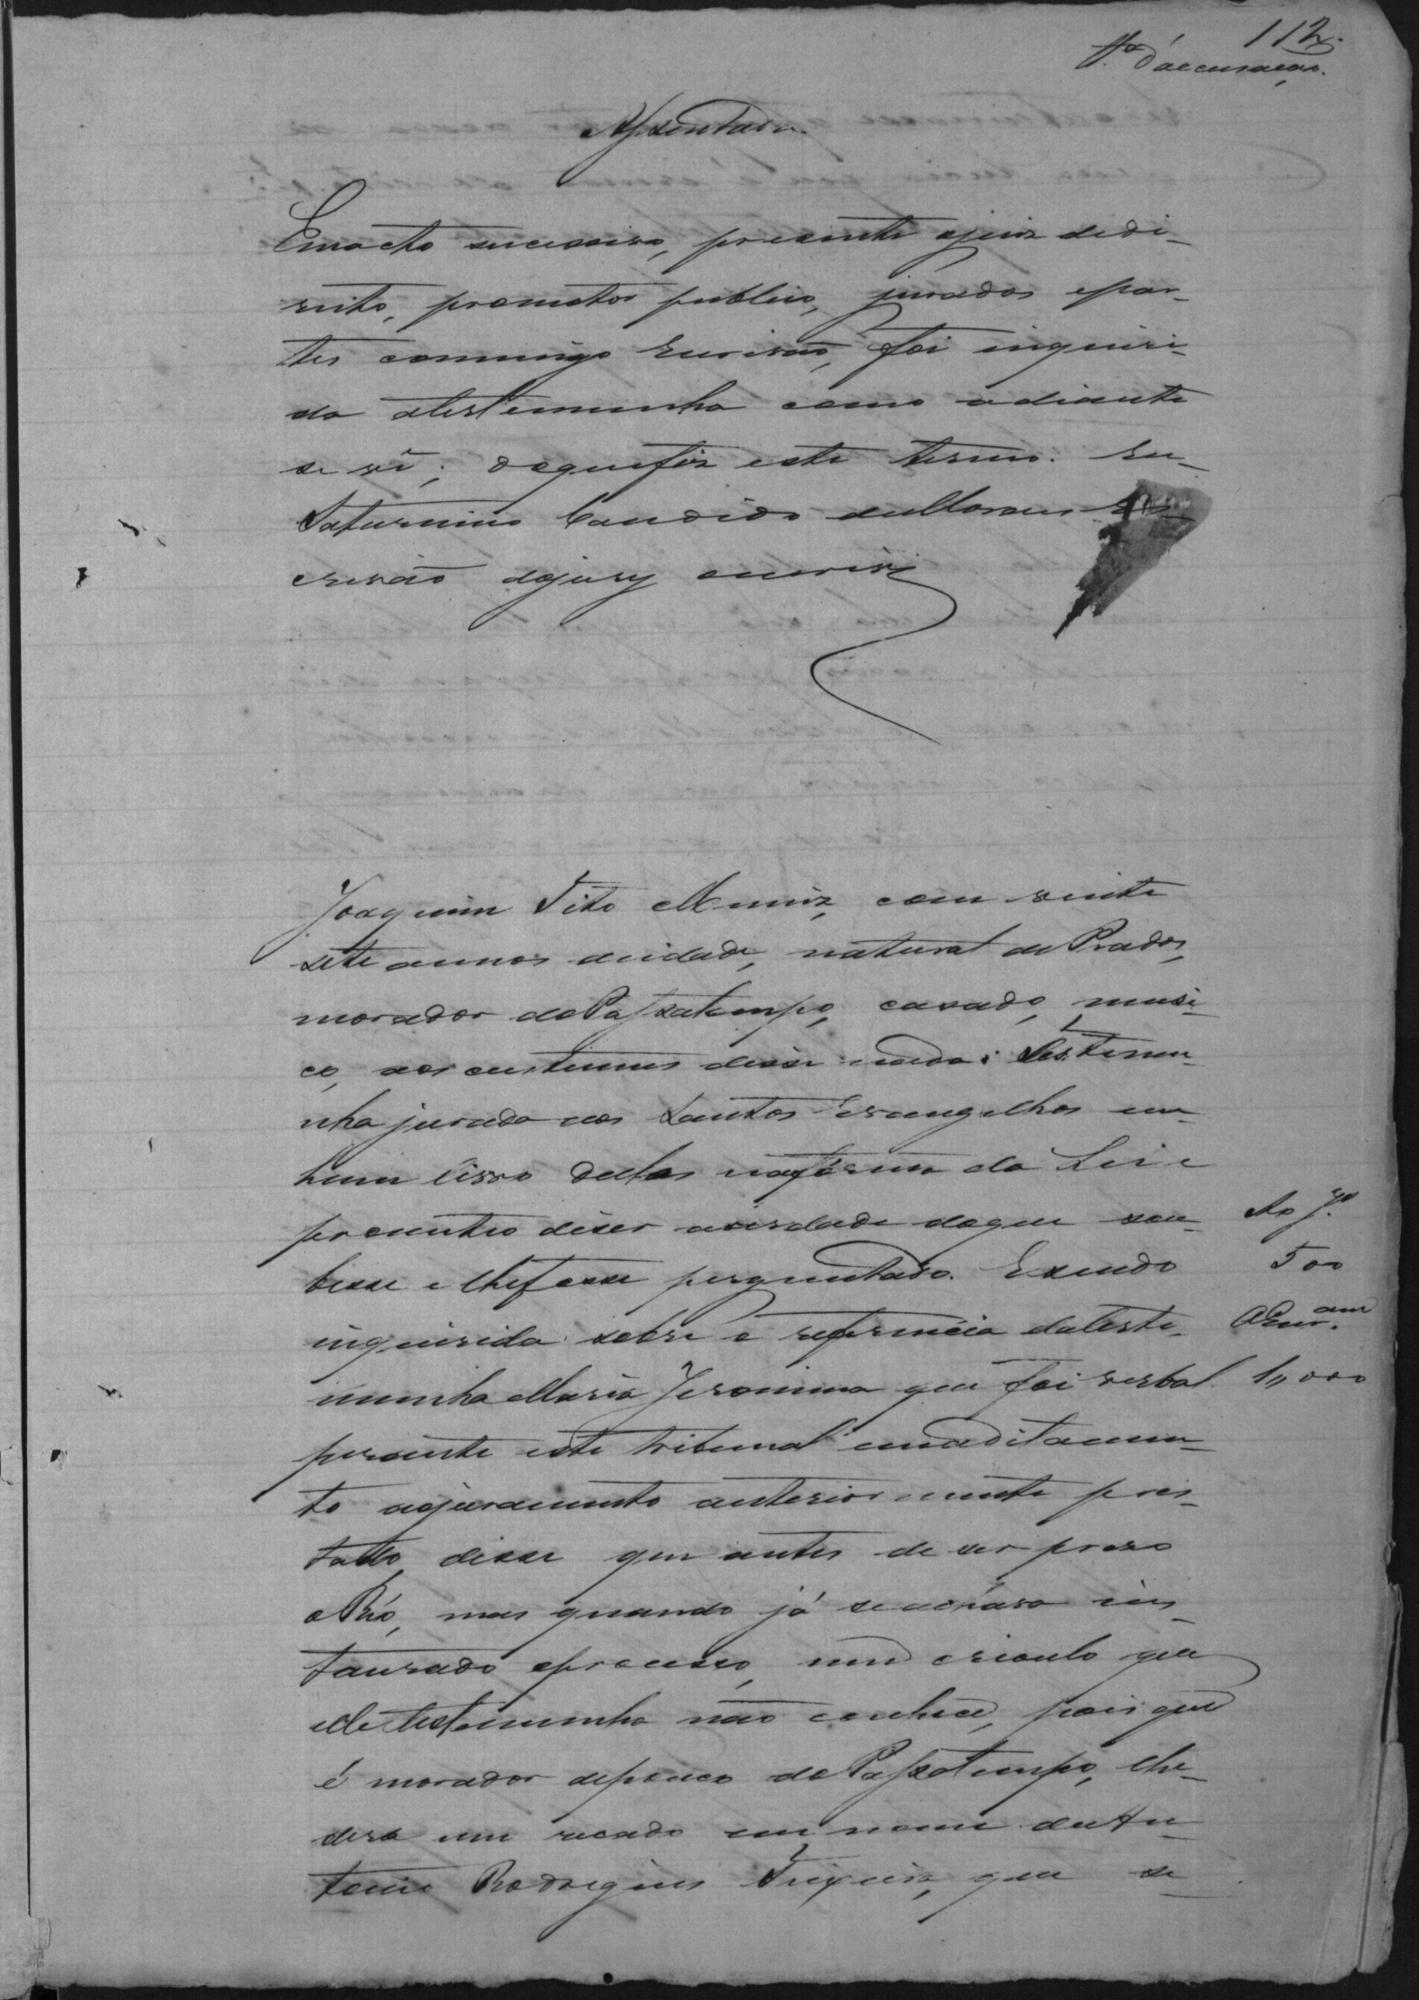 112.
T.ª d'accusação.
Assentada.
Em acto successivo, presente o juiz de di-
reito, promotor publico, jurados e par-
tes commigo Escrivão, foi inquiri-
da a testemunha como adiante
se vê; do que fiz este termo. Eu
Saturnino Candido de Moraes Es-
crivão do jury escrevi
Joaquim Tito Muniz, com vinte
sete annos de idade, natural de Prados,
morador do Passatempo, casado, musi-
co, aos custumes disse nada: Testemu-
nha jurada aos Santos Evangelhos em
hum livro delles na fórma da Lei e
prometteo diser a verdade do que sou-
besse e lhe fosse perguntado. E sendo
inquirida sobre a referencia da teste-
munha Maria Jeronima que foi verbal
perante este tribunal em aditamen-
to ao juramento anteriormente pres-
tado, disse que antes de ser preso
o Réo, mas quando já se achava ins-
taurado o processo, um crioulo que
elle testemunha não conhece, pois que
é morador de pouco do Passatempo, lhe
dera um recado em nome de An-
tonio Rodrigues Teixeira, que se
Ao J.
500
1,000